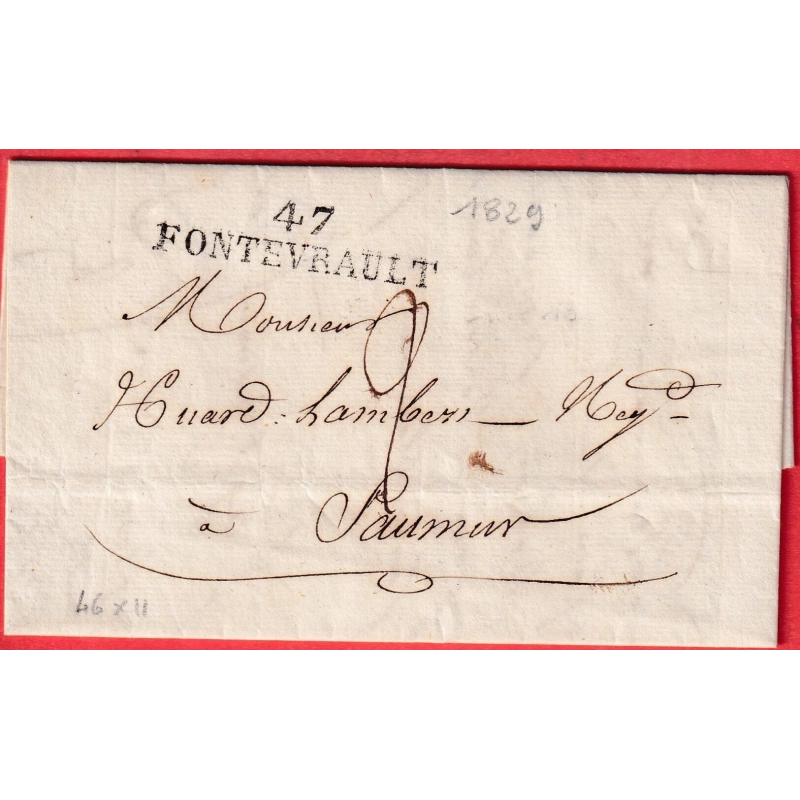 47
1829
FONTEVRAULT
Monsieur
2
huard-Lambert Neg.t
à Saumur
46 x 11